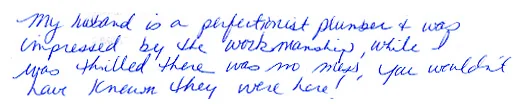 My husband is a perfectionist plumber & was
impressed by the workmanship, while I
was thrilled there was no mess, you wouldn't
have known they were here!